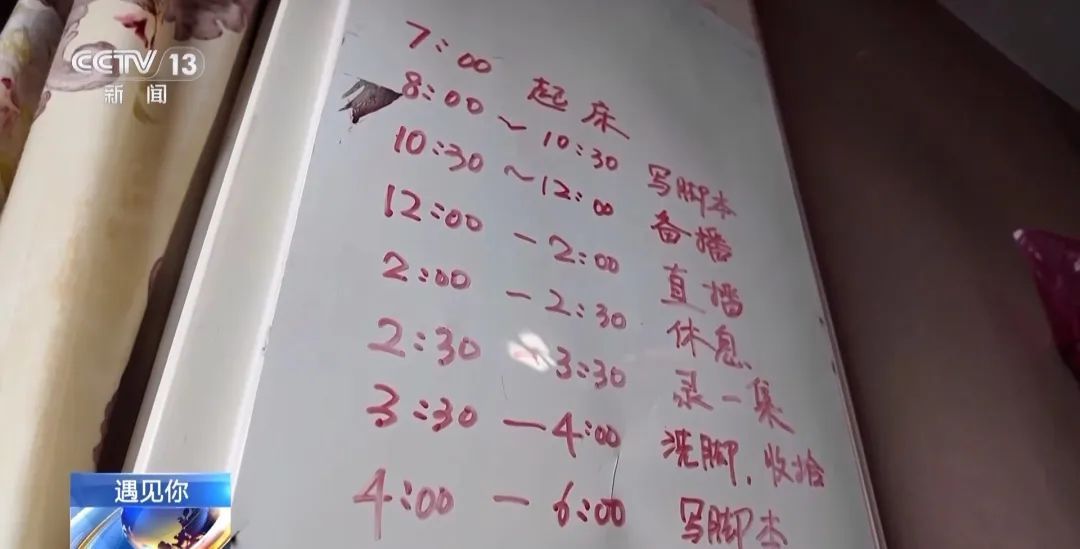 CCTV 13
新闻
7:00 起床
8:00~10:30 写脚本
10:30~12:00 备播
12:00-2:00 直播
2:00-2:30 休息
2:30-3:30 录一集
3:30-4:00 洗脚、收拾
4:00-6:00 写脚本
遇见你